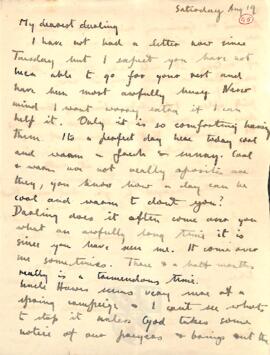 Saturday Aug 19
My dearest darling
I have not had a letter now since
Tuesday but I expect you have not
been able to go for your rest and
have been most awfully busy. Never
mind I wont worry if I can
help it. Only it is so comforting having
them. Its a perfect day here today cool
and warm & fresh & sunny. Cool
& warm are not really opposites are
they, you know how a day can be
cool and warm to dont you?
Darling does it often come over you
what an awfully long time it is
since you have seen me. It comes over
me sometimes. Three & a half months
really is a tremendous time.
Uncle Hawes seems very sure of a
spring campaign & I cant see whats
to stop it unless God takes some
notice of our prayers & brings out the